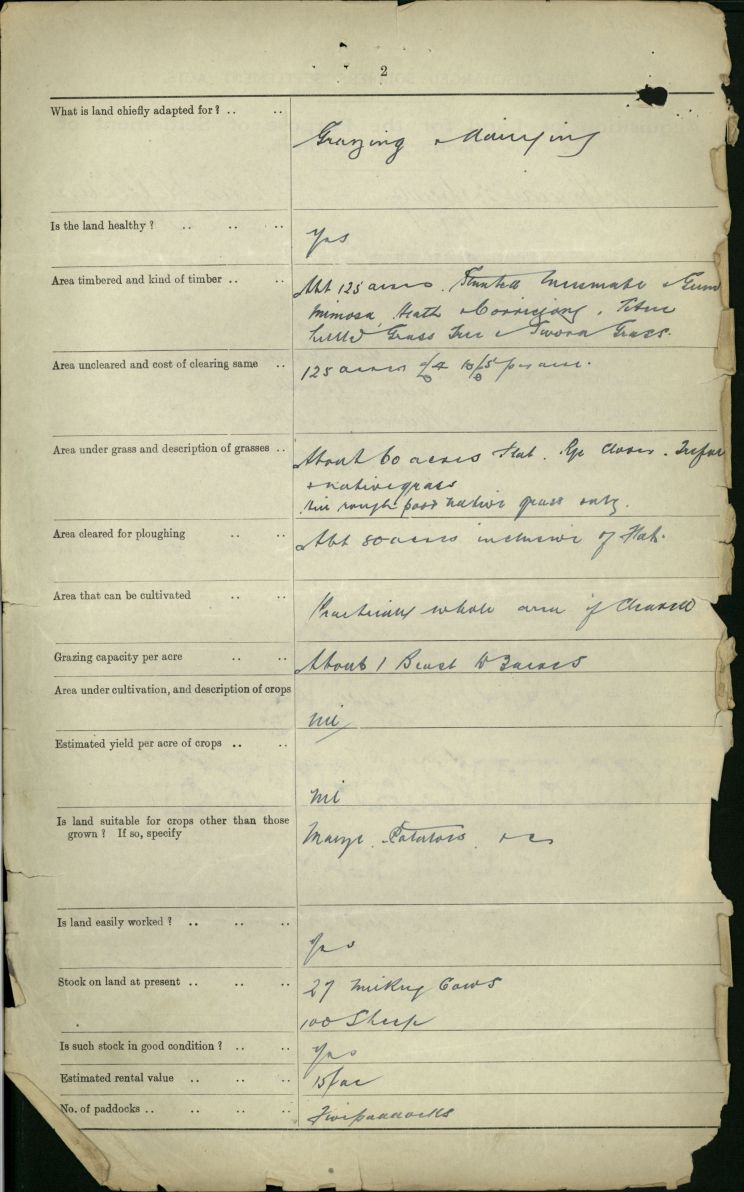 2
What is land chiefly adapted for ? .. ..
Grazing & dairying
Is the land healthy ? .. .. ..
Yes
Area timbered and kind of timber .. ..
Abt 125 acres. Stunted & Gum
Mimosa, Heath
Grass Tree & Grass.
Area uncleared and cost of clearing same ..
125 acres per acre.
Area under grass and description of grasses ..
About 60 acres Flat. Rye Clover.
& native grass
rough poor native grass only.
Area cleared for ploughing .. ..
Abt 80 acres inclusive of Flat.
Area that can be cultivated .. ..
Practically whole area if cleared
Grazing capacity per acre .. ..
About 1 Beast to 3 acres
Area under cultivation, and description of crops
Nil
Estimated yield per acre of crops .. ..
Nil
Is land suitable for crops other than those
grown ? If so, specify
Maize. Potatoes
Is land easily worked ? .. .. ..
Yes
Stock on land at present .. .. ..
27 Milking Cows
100 Sheep
Is such stock in good condition ? .. ..
Yes
Estimated rental value .. .. ..
No. of paddocks .. .. .. ..
Five paddocks